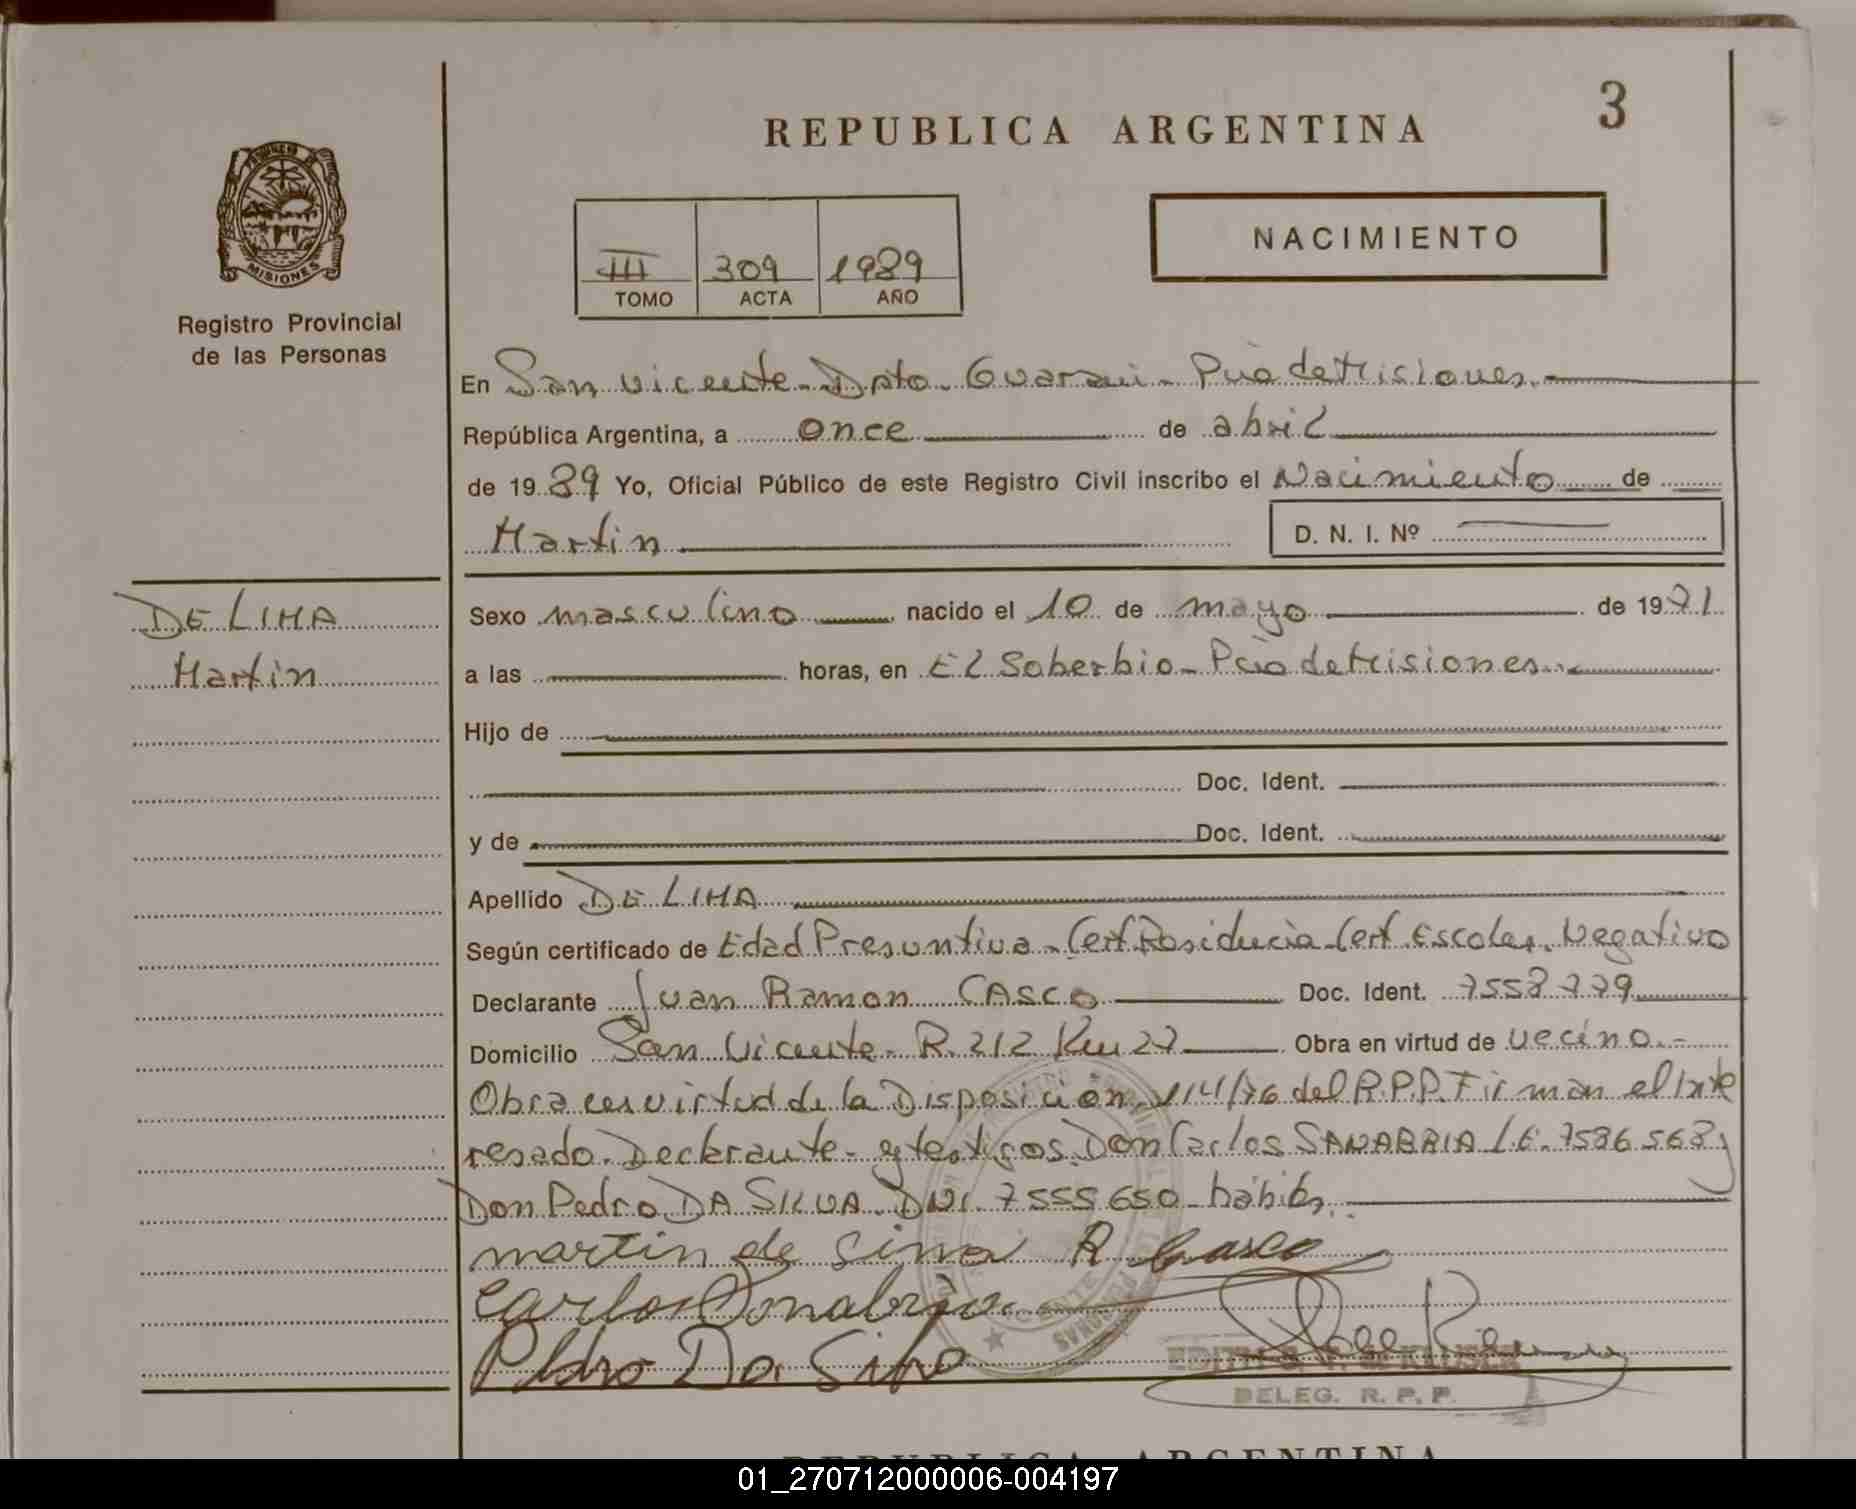 3
REPUBLICA ARGENTINA
PROVINCIA DE
MISIONES
Registro Provincial
de las Personas
NACIMIENTO
III 309 1989
TOMO ACTA AÑO
En San Vicente - Dpto. Guarani - Pcia de Misiones.
República Argentina, a once de abril
de 1989 Yo, Oficial Público de este Registro Civil inscribo el Nacimiento de
Martin D. N. I. Nº
DE LIMA
Martin
Sexo masculino nacido el 10 de mayo de 1971
a las horas, en El Soberbio - Pcia de Misiones.
Hijo de
Doc. Ident.
y de Doc. Ident.
Apellido DE LIMA
Según certificado de Edad Presuntiva - Cert. Residencia - Cert. Escolar. Negativo
Declarante Juan Ramon CASCO Doc. Ident. 7558779
Domicilio San Vicente - R. 212 Km 27 Obra en virtud de vecino.-
Obra en virtud de la Disposicion 114/76 del R.P.P. Firman el Inte
resado. Declarante - y testigos. Don Carlos SANABRIA L.E. 7586568 y
Don Pedro DA SILVA. DNI. 7555650 - habiles.
martin de Lima R Casco
Carlos Sanabria
Pedro Da Silva
DELEG. R. P. P.
REPUBLICA ARGENTINA
01_270712000006-004197